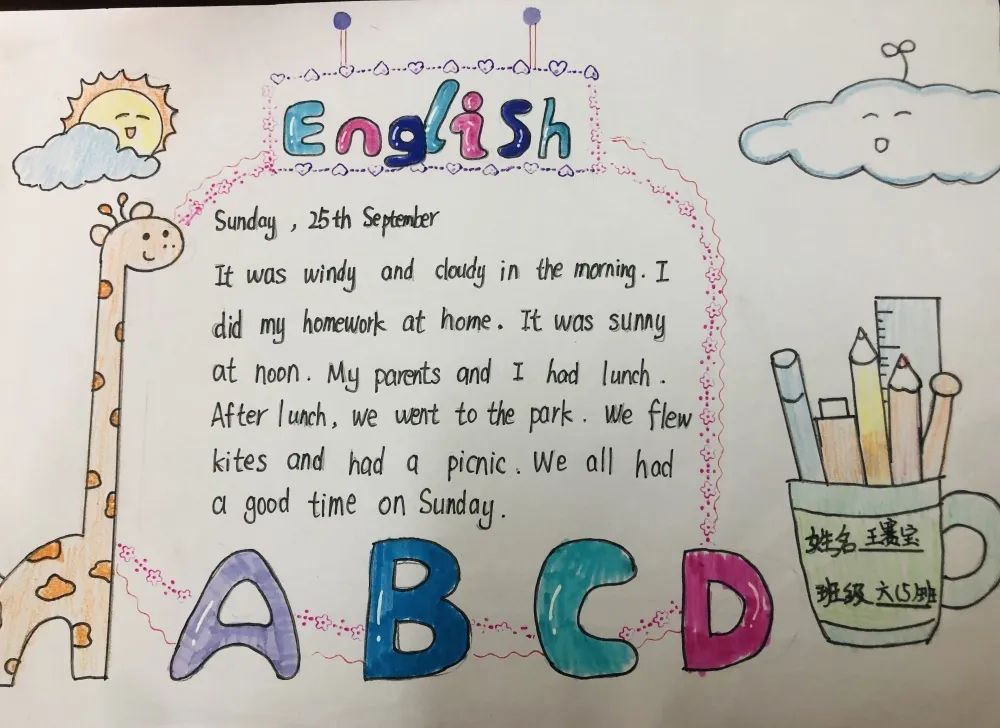 English
Sunday , 25th September
It was windy and cloudy in the morning. I
did my homework at home. It was sunny
at noon. My parents and I had lunch.
After lunch, we went to the park. We flew
kites and had a picnic. We all had
a good time on Sunday.
A B C D
姓名 王赛宝
班级 六(5)班